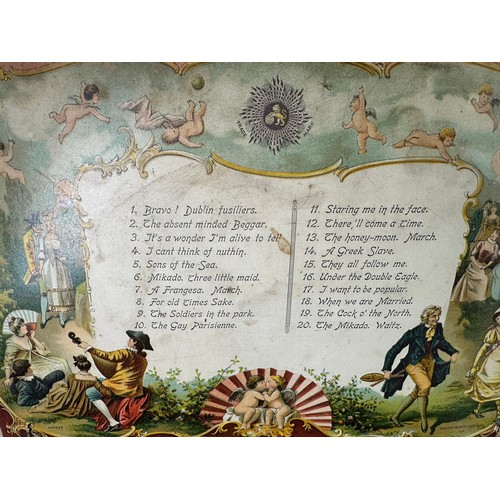 TRADE MARK
1. Bravo! Dublin fusiliers.
2. The absent minded Beggar.
3. It's a wonder I'm alive to tell
4. I cant think of nuthin.
5. Sons of the Sea.
6. Mikado. Three little maid.
7. A Frangesa. March.
8. For old Times Sake.
9. The Soldiers in the park.
10. The Gay Parisienne.
11. Staring me in the face.
12. There,'ll come a time.
13. The honey-moon. March.
14. A Greek Slave.
15. They all follow me.
16. Under the Double Eagle.
17. I want to be popular.
18. When we are Married.
19. The Cock o' the North.
20. The Mikado. Waltz.